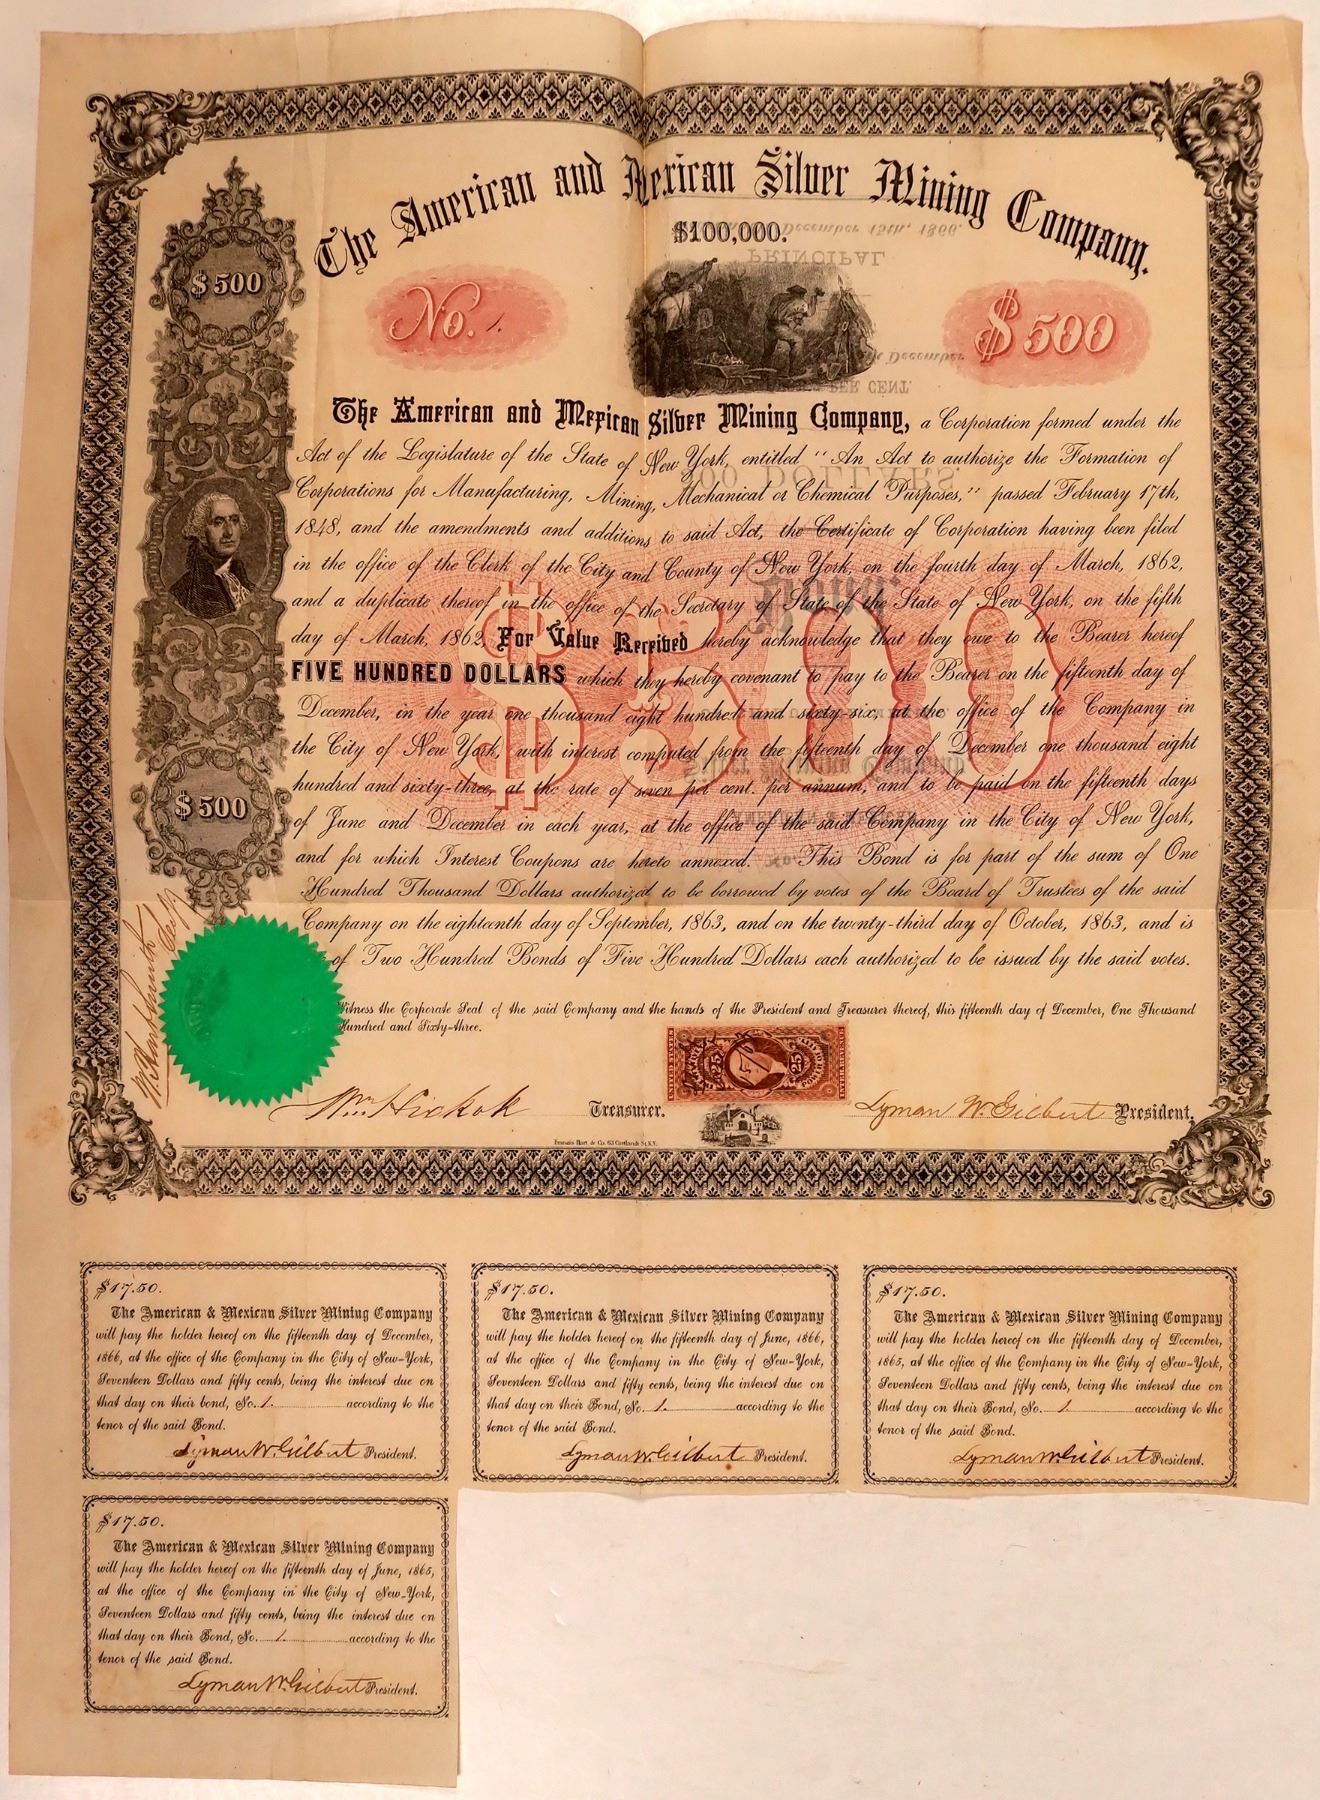 The American and Mexican Silver Mining Company.
$100,000.
December 15th, 1866.
PRINCIPAL
$500
No. 1.
$500
December
PER CENT.
The American and Mexican Silver Mining Company, a Corporation formed under the
Act of the Legislature of the State of New York, entitled "An Act to authorize the Formation of
Corporations for Manufacturing, Mining, Mechanical or Chemical Purposes," passed February 17th,
1848, and the amendments and additions to said Act, the Certificate of Corporation having been filed
in the office of the Clerk of the City and County of New York, on the fourth day of March, 1862,
and a duplicate thereof in the office of the Secretary of State of the State of New York, on the fifth
day of March, 1862, For Value Received hereby acknowledge that they owe to the Bearer hereof
FIVE HUNDRED DOLLARS which they hereby covenant to pay to the Bearer on the fifteenth day of
December, in the year one thousand eight hundred and sixty-six, at the office of the Company in
the City of New York, with interest computed from the fifteenth day of December one thousand eight
hundred and sixty-three, at the rate of seven per cent. per annum, and to be paid on the fifteenth days
of June and December in each year, at the office of the said Company in the City of New York,
and for which Interest Coupons are hereto annexed. This Bond is for part of the sum of One
Hundred Thousand Dollars authorized to be borrowed by votes of the Board of Trustees of the said
Company on the eighteenth day of September, 1863, and on the twenty-third day of October, 1863, and is
of Two Hundred Bonds of Five Hundred Dollars each authorized to be issued by the said votes.
$500
$500
Witness the Corporate Seal of the said Company and the hands of the President and Treasurer thereof, this fifteenth day of December, One Thousand
Hundred and Sixty-three.
25 25
Wm Hickok Treasurer.
Lyman W. Gilbert President.
Francis Hart & Co. 63 Cortlandt St. N.Y.
$17.50.
The American & Mexican Silver Mining Company
will pay the holder hereof on the fifteenth day of December,
1866, at the office of the Company in the City of New-York,
Seventeen Dollars and fifty cents, being the interest due on
that day on their bond, No. 1. according to the
tenor of the said Bond.
Lyman W. Gilbert President.
$17.50.
The American & Mexican Silver Mining Company
will pay the holder hereof on the fifteenth day of June, 1866,
at the office of the Company in the City of New-York,
Seventeen Dollars and fifty cents, being the interest due on
that day on their Bond, No. 1. according to the
tenor of the said Bond.
Lyman W. Gilbert President.
$17.50.
The American & Mexican Silver Mining Company
will pay the holder hereof on the fifteenth day of December,
1865, at the office of the Company in the City of New-York,
Seventeen Dollars and fifty cents, being the interest due on
that day on their Bond, No. 1. according to the
tenor of the said Bond.
Lyman W. Gilbert President.
$17.50.
The American & Mexican Silver Mining Company
will pay the holder hereof on the fifteenth day of June, 1865,
at the office of the Company in the City of New-York,
Seventeen Dollars and fifty cents, being the interest due on
that day on their Bond, No. 1. according to the
tenor of the said Bond.
Lyman W. Gilbert President.